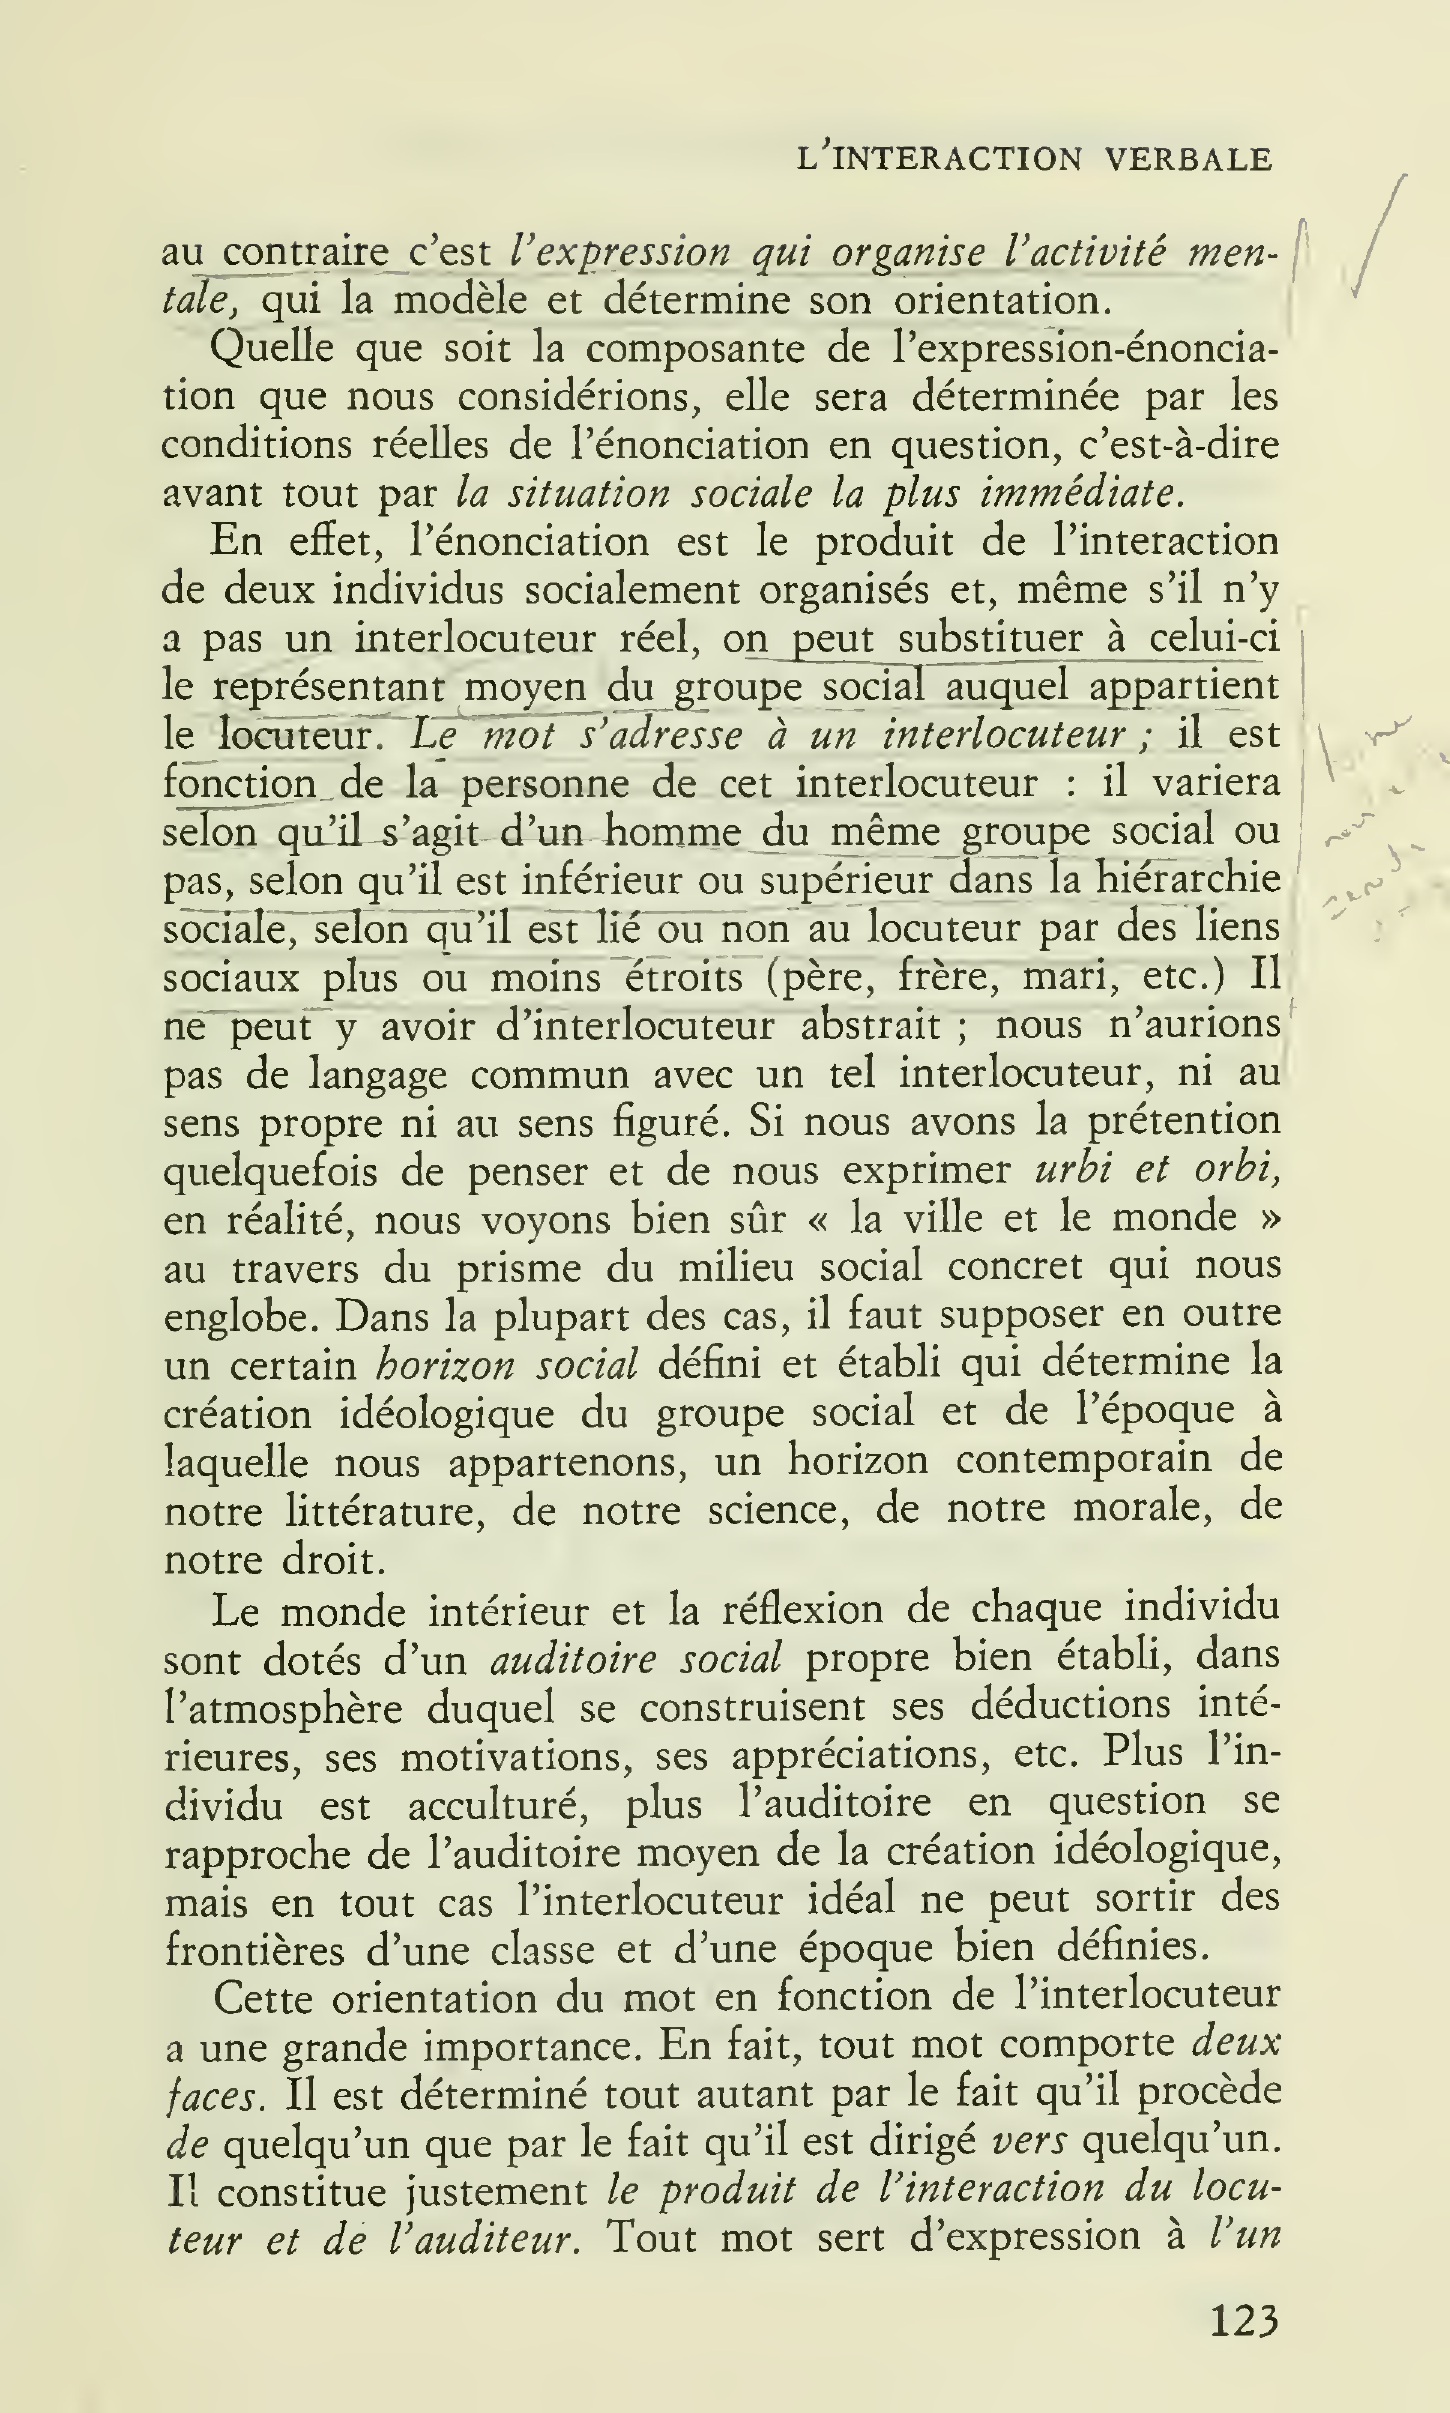 L'INTERACTION VERBALE
au contraire c'est l'expression qui organise l'activité men-
tale, qui la modèle et détermine son orientation.
Quelle que soit la composante de l'expression-énoncia-
tion que nous considérions, elle sera déterminée par les
conditions réelles de l'énonciation en question, c'est-à-dire
avant tout par la situation sociale la plus immédiate.
En effet, l'énonciation est le produit de l'interaction
de deux individus socialement organisés et, même s'il n'y
a pas un interlocuteur réel, on peut substituer à celui-ci
le représentant moyen du groupe social auquel appartient
le locuteur. Le mot s'adresse à un interlocuteur ; il est
fonction de la personne de cet interlocuteur : il variera
selon qu'il s'agit d'un homme du même groupe social ou
pas, selon qu'il est inférieur ou supérieur dans la hiérarchie
sociale, selon qu'il est lié ou non au locuteur par des liens
sociaux plus ou moins étroits (père, frère, mari, etc.) Il
ne peut y avoir d'interlocuteur abstrait ; nous n'aurions
pas de langage commun avec un tel interlocuteur, ni au
sens propre ni au sens figuré. Si nous avons la prétention
quelquefois de penser et de nous exprimer urbi et orbi,
en réalité, nous voyons bien sûr « la ville et le monde »
au travers du prisme du milieu social concret qui nous
englobe. Dans la plupart des cas, il faut supposer en outre
un certain horizon social défini et établi qui détermine la
création idéologique du groupe social et de l'époque à
laquelle nous appartenons, un horizon contemporain de
notre littérature, de notre science, de notre morale, de
notre droit.
Le monde intérieur et la réflexion de chaque individu
sont dotés d'un auditoire social propre bien établi, dans
l'atmosphère duquel se construisent ses déductions inté-
rieures, ses motivations, ses appréciations, etc. Plus l'in-
dividu est acculturé, plus l'auditoire en question se
rapproche de l'auditoire moyen de la création idéologique,
mais en tout cas l'interlocuteur idéal ne peut sortir des
frontières d'une classe et d'une époque bien définies.
Cette orientation du mot en fonction de l'interlocuteur
a une grande importance. En fait, tout mot comporte deux
faces. Il est déterminé tout autant par le fait qu'il procède
de quelqu'un que par le fait qu'il est dirigé vers quelqu'un.
Il constitue justement le produit de l'interaction du locu-
teur et de l'auditeur. Tout mot sert d'expression à l'un
123